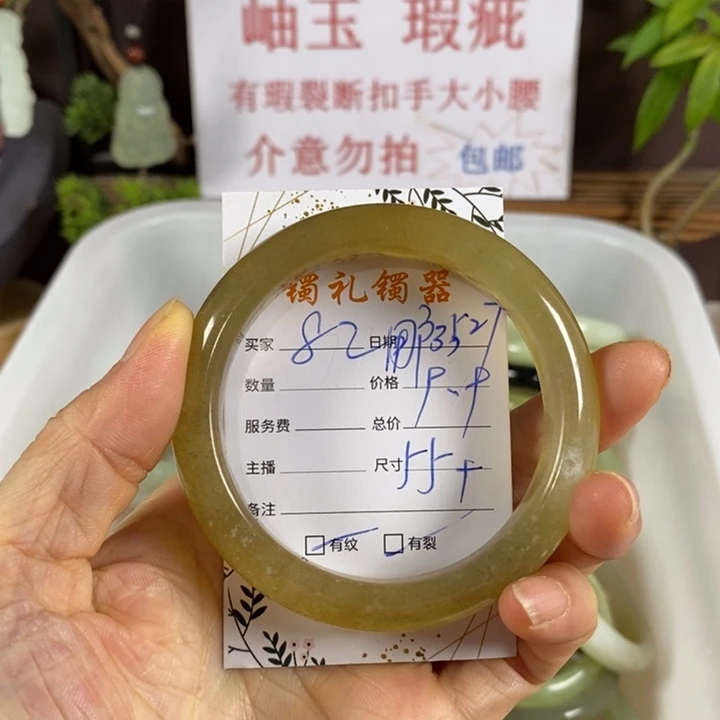 岫玉 瑕疵
有瑕裂断扣手大小腰
介意勿拍 包邮
镯礼镯器
买家 82 日期 33527
数量 价格 9.9
服务费 总价
主播 尺寸 55+
备注
有纹 有裂